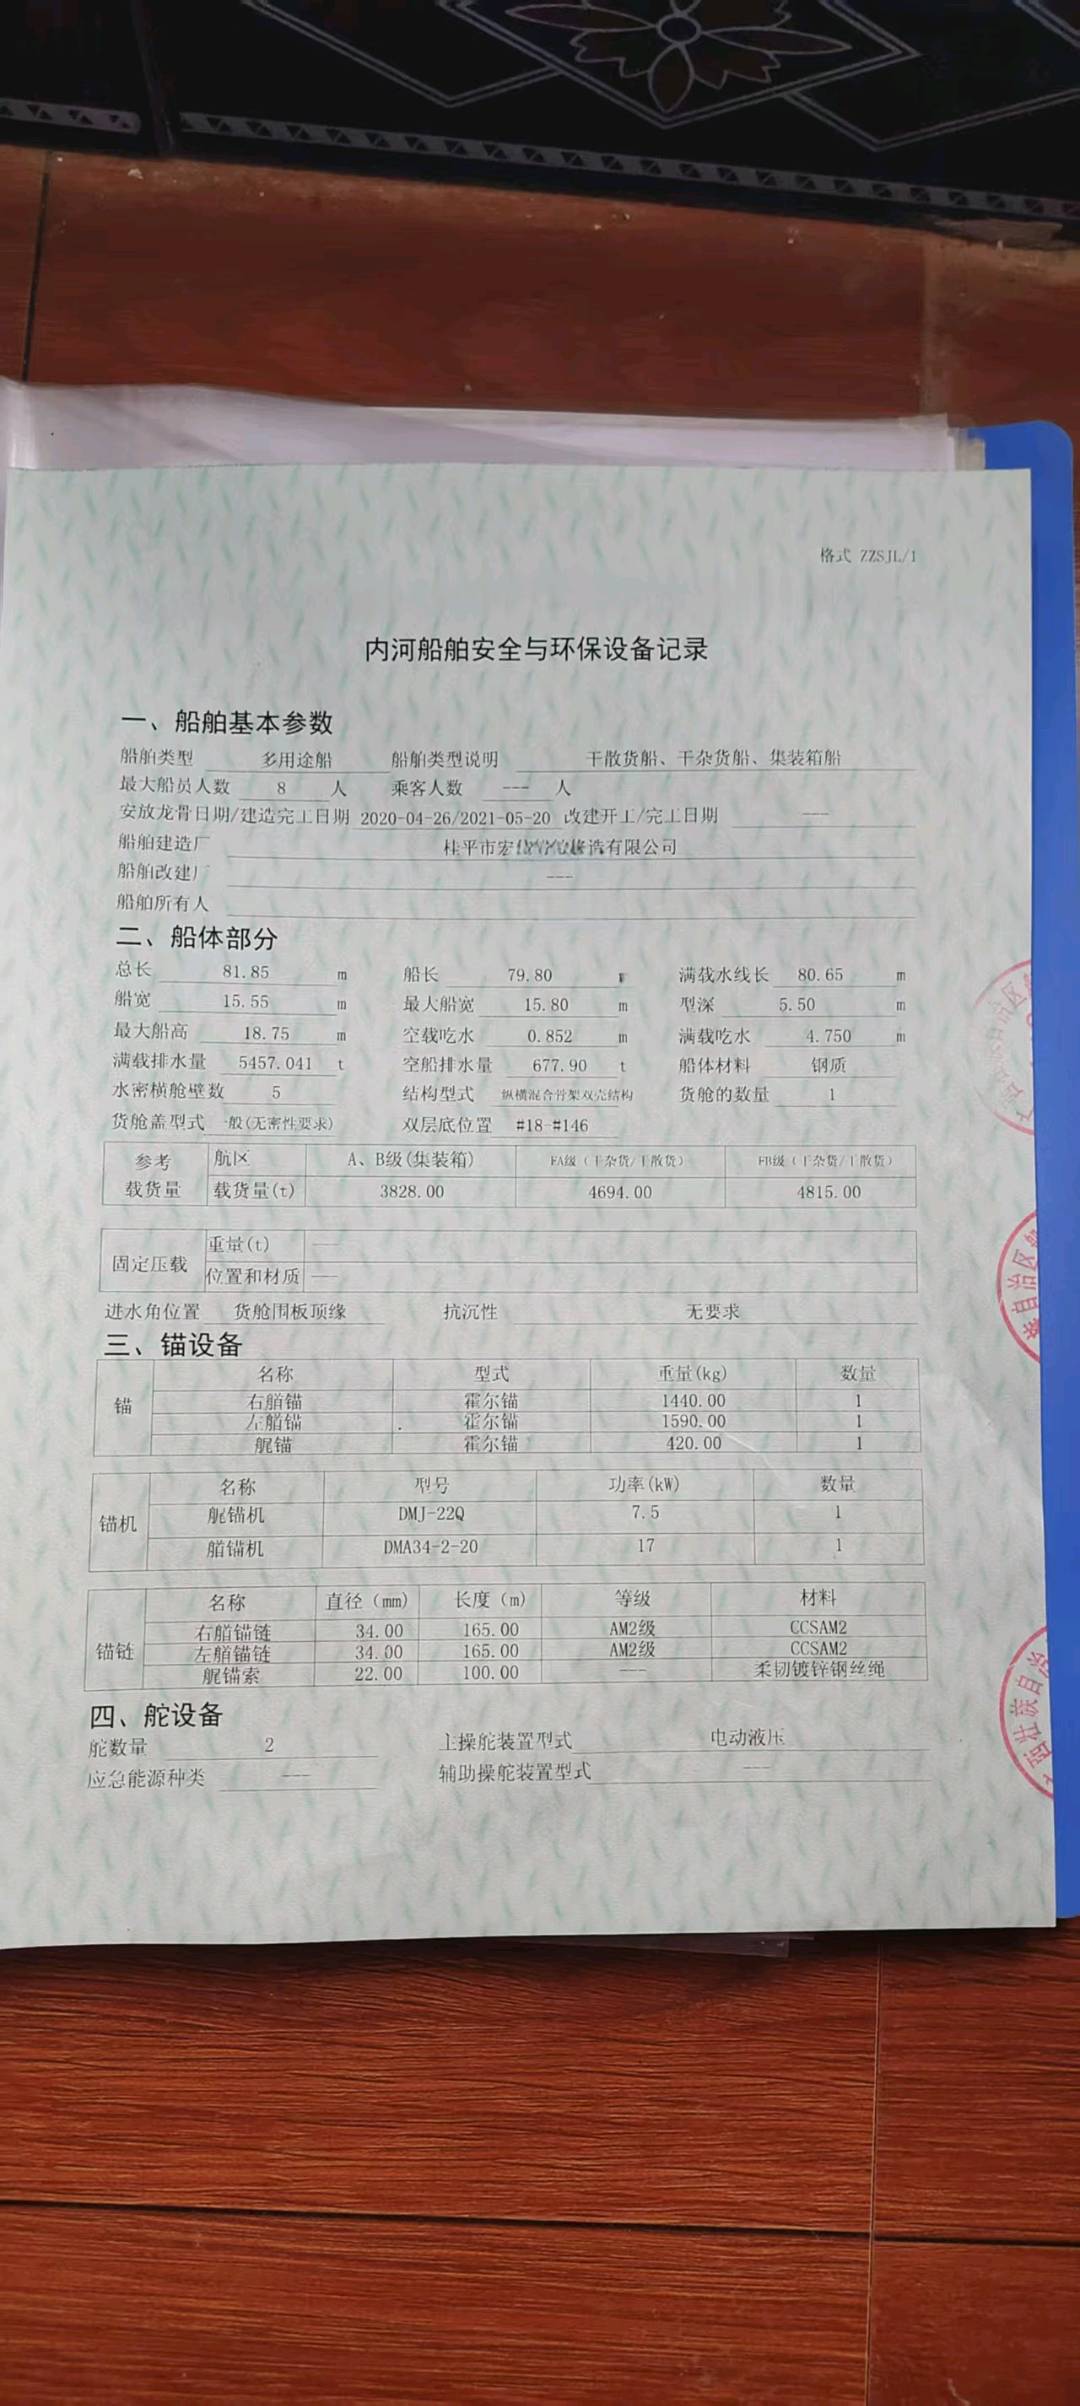 格式 ZZSJL/1
内河船舶安全与环保设备记录
一、船舶基本参数
船舶类型 多用途船 船舶类型说明 干散货船、干杂货船、集装箱船
最大船员人数 8 人 乘客人数 --- 人
安放龙骨日期/建造完工日期 2020-04-26/2021-05-20 改建开工/完工日期 ---
船舶建造厂 桂平市宏 造有限公司
船舶改建厂 ---
船舶所有人
二、船体部分
总长 81.85 m 船长 79.80 m 满载水线长 80.65 m
船宽 15.55 m 最大船宽 15.80 m 型深 5.50 m
最大船高 18.75 m 空载吃水 0.852 m 满载吃水 4.750 m
满载排水量 5457.041 t 空船排水量 677.90 t 船体材料 钢质
水密横舱壁数 5 结构型式 纵横混合骨架双壳结构 货舱的数量 1
货舱盖型式 一般(无密性要求) 双层底位置 #18-#146
参考载货量 航区 A、B级(集装箱) FA级（干杂货/干散货） FB级（干杂货/干散货）
载货量(t) 3828.00 4694.00 4815.00
固定压载 重量(t) ---
位置和材质 ---
进水角位置 货舱围板顶缘 抗沉性 无要求
三、锚设备
锚 名称 型式 重量(kg) 数量
右艏锚 霍尔锚 1440.00 1
左艏锚 霍尔锚 1590.00 1
艉锚 霍尔锚 420.00 1
锚机 名称 型号 功率(kW) 数量
艉锚机 DMJ-22Q 7.5 1
艏锚机 DMA34-2-20 17 1
锚链 名称 直径（mm） 长度（m） 等级 材料
右艏锚链 34.00 165.00 AM2级 CCSAM2
左艏锚链 34.00 165.00 AM2级 CCSAM2
艉锚索 22.00 100.00 --- 柔韧镀锌钢丝绳
四、舵设备
舵数量 2 主操舵装置型式 电动液压
应急能源种类 --- 辅助操舵装置型式 ---